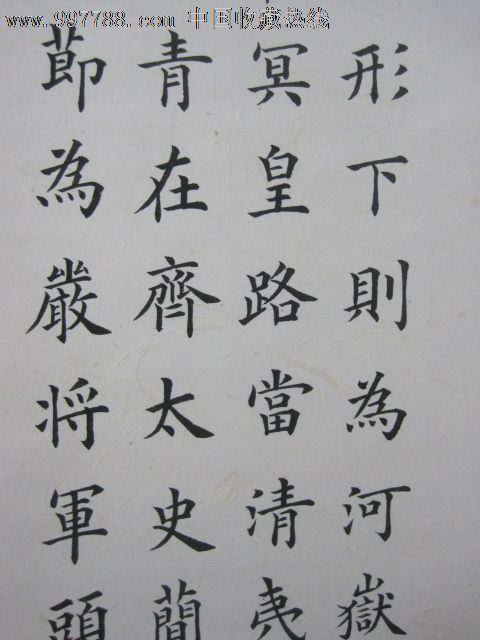 www.997788.com 中国收藏热线
形下則為河嶽
冥皇路當清夷
青在齊太史簡
節為嚴将軍頭